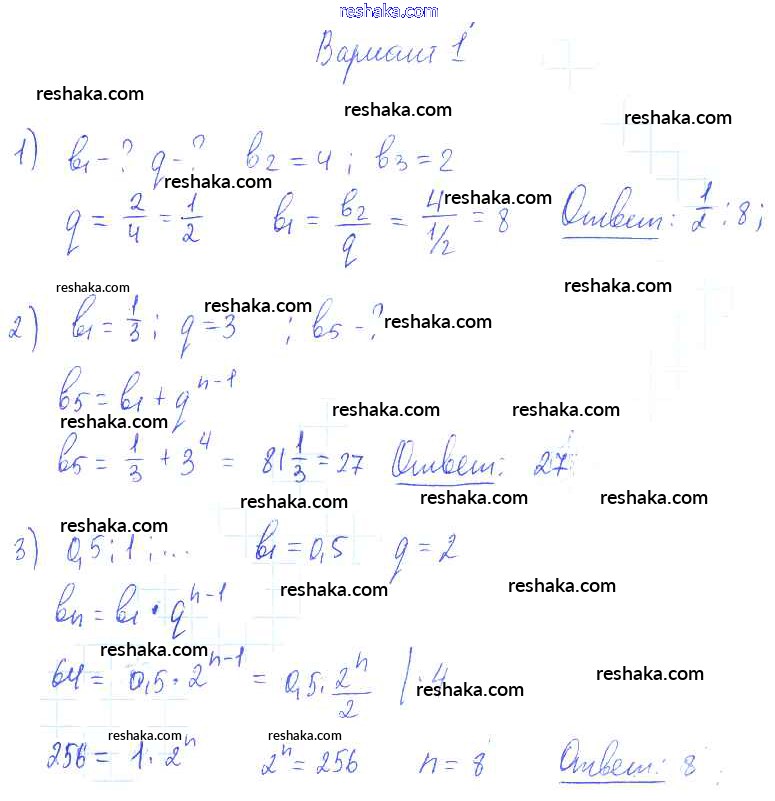 reshaka.com
Вариант 1
reshaka.com reshaka.com reshaka.com
1) b₁ - ? q - ? b₂ = 4 ; b₃ = 2
reshaka.com reshaka.com
q = 2/4 = 1/2 b₁ = b₂/q = 4/(1/2) = 8 Ответ: 1/2 ; 8 ;
reshaka.com reshaka.com reshaka.com
2) b₁ = 1/3 ; q = 3 ; b₅ - ? reshaka.com
b₅ = b₁ + q^(n-1)
reshaka.com reshaka.com reshaka.com
b₅ = 1/3 + 3^4 = 81 1/3 = 27 Ответ: 27
reshaka.com reshaka.com reshaka.com
reshaka.com
3) 0,5 ; 1 ; ... b₁ = 0,5 q = 2
reshaka.com reshaka.com
bₙ = b₁ · q^(n-1)
reshaka.com
64 = 0,5 · 2^(n-1) = 0,5 · 2^n/2 | · 4
reshaka.com reshaka.com
reshaka.com reshaka.com reshaka.com
256 = 1 · 2^n 2^n = 256 n = 8 Ответ: 8